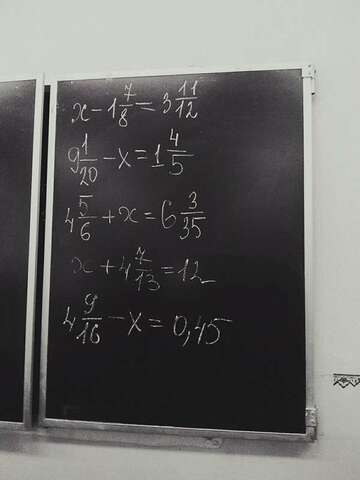 x - 1 7/8 = 3 11/12
9 1/20 - x = 1 4/5
4 5/6 + x = 6 3/35
x + 4 7/13 = 12
4 9/16 - x = 0,45